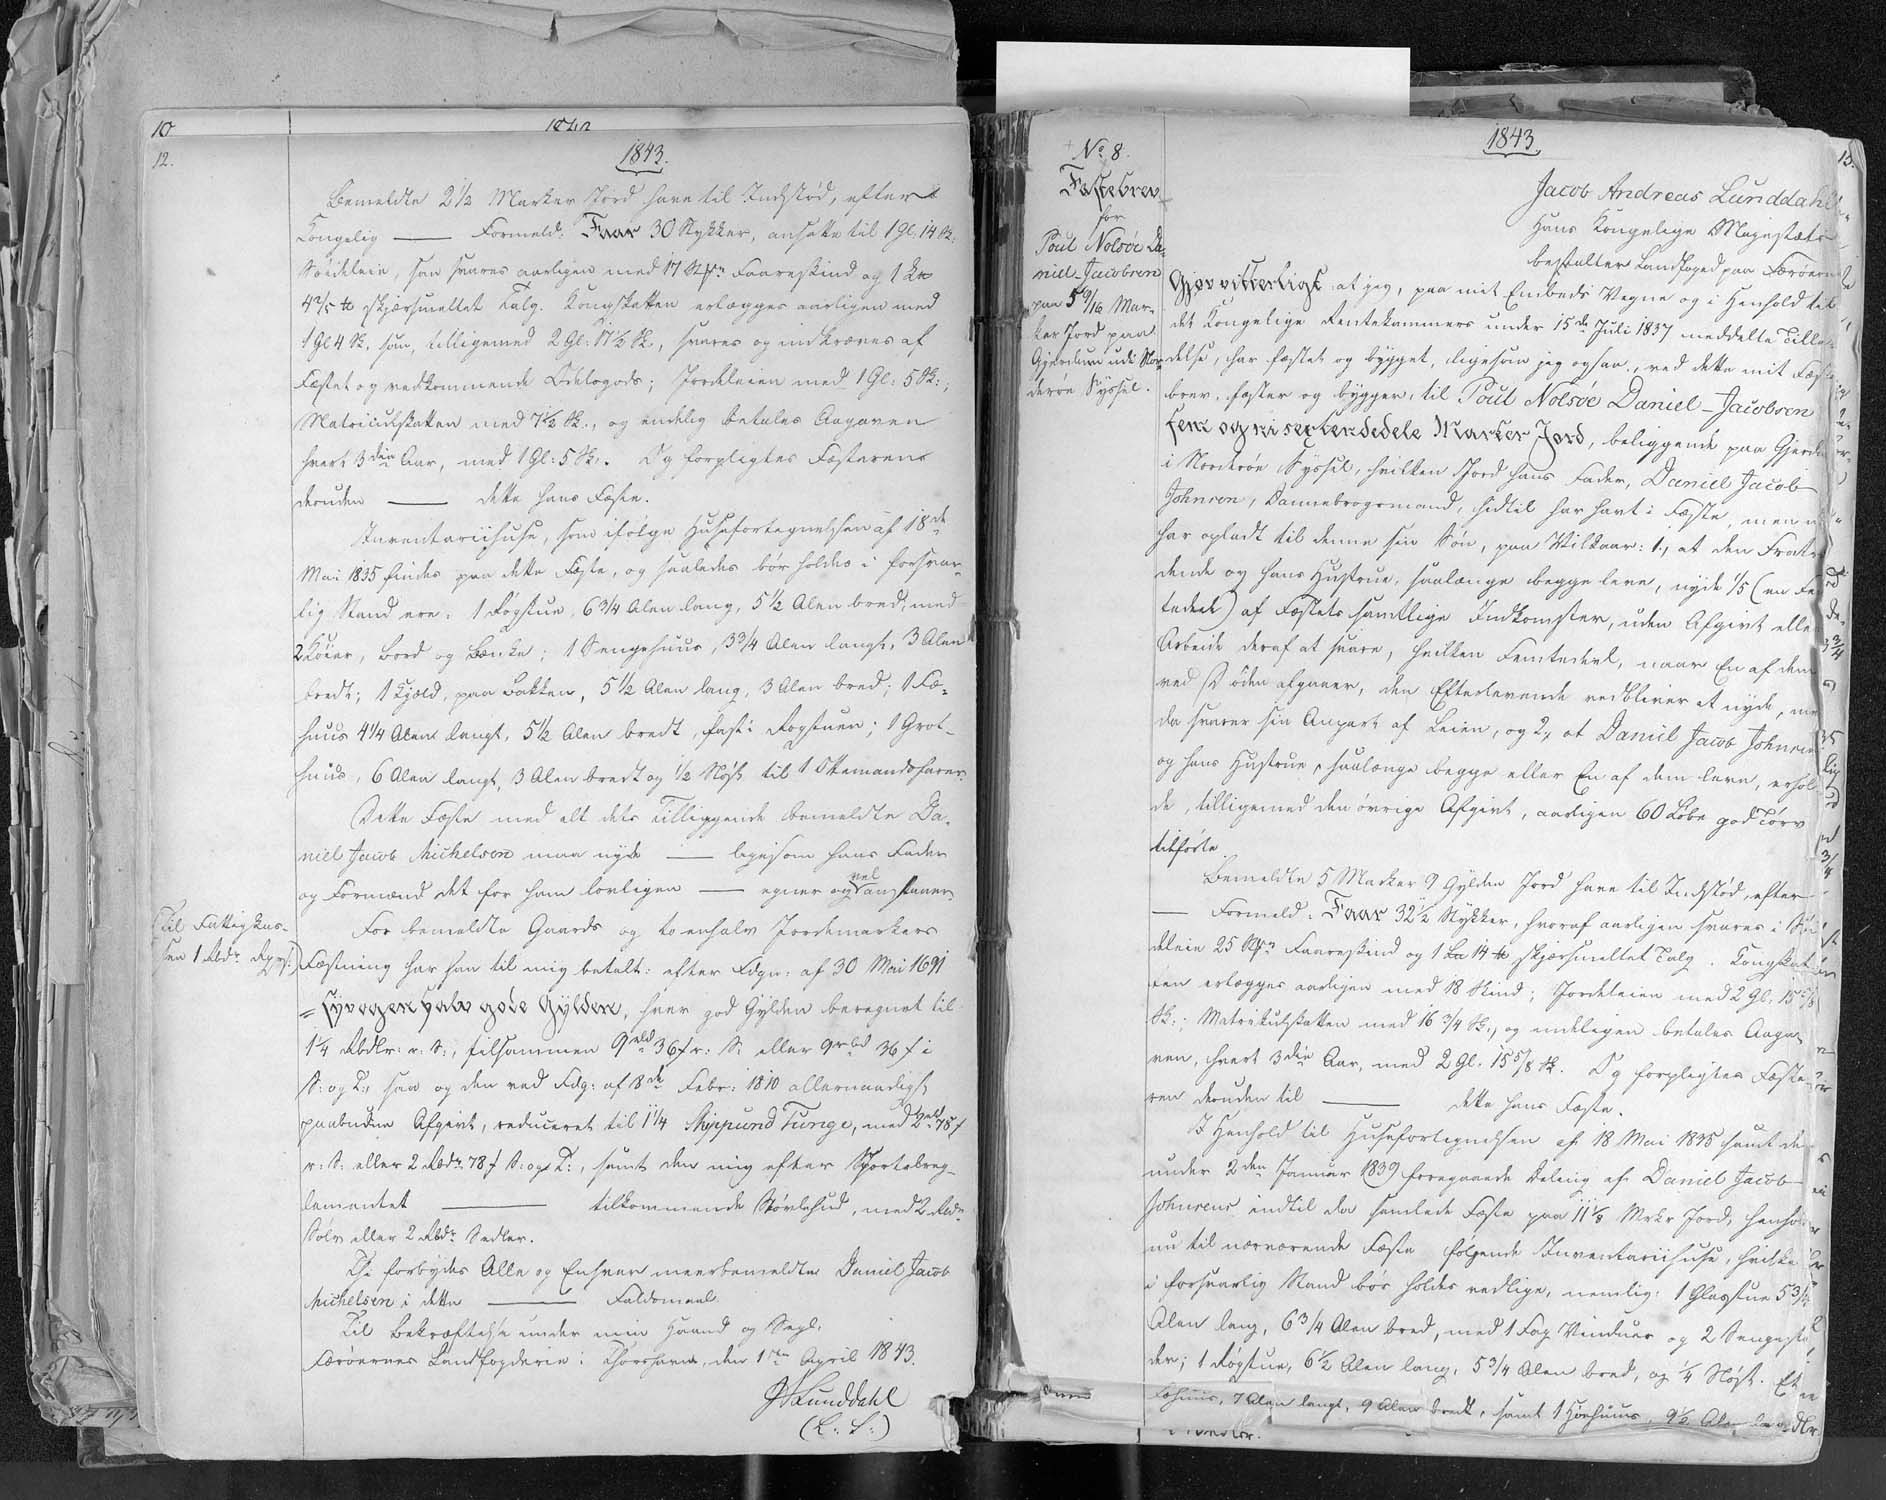 10
1842
12.
1843.
Bemeldte 2 1/2 Marker Jord have til Indstød, efter
Kongelig — Formeld: Faar 30 Stykker, ansatte til 1 Gl. 14 Sk.
Søideleie, som svares aarligen med 17 Stkr Faareskind og 1
4 2/5 ℔ skjærsmeltet Talg. Kongskatten erlægges aarligen med
1 Gl 4 Sk. som, tilligemed 2 Gl: 17 1/2 Sk., svares og indkræves af
Fæstet og vedkommende Odelsgods; Jordeleien med 1 Gl: 5 Sk:,
Matriculskatten med 7 1/2 Sk., og endelig betales Aagaven
hvert 3die Aar, med 1 Gl: 5 Sk:. Og forpligtes Fæsteren
deruden — dette hans Fæste.
Inventariihuse, som ifølge Husefortegnelsen af 18de
Mai 1835 findes paa dette Fæste, og saaledes bør holdes i forsvar-
lig Stand ere: 1 Røgstue, 6 3/4 Alen lang, 5 1/2 Alen bred, med
2 Køier, Bord og Bænke; 1 Sengehuus, 3 3/4 Alen langt, 3 Alen
bredt; 1 Kjeld, paa Bakken, 5 1/2 Alen lang, 3 Alen bred; 1 Fæ-
huus 4 1/4 Alen langt, 5 1/2 Alen bredt, fast i Rogstuen; 1 Grot-
huus, 6 Alen langt, 3 Alen bredt og 1/2 Nøst til 1 Ottemandsfarer.
Dette Fæste med alt dets Tilliggende bemeldte Da-
niel Jacob Michelsen maa nyde — ligesom hans Fader
og Formænd det for ham lovligen — egner og vel anstaaer.
Til Fattigkas-
sen 1 Rbdr Rpgl.
For bemeldte Gaards og to enhalv Jordemarkers
Fæstning har han til mig betalt: efter Fdgn: af 30 Mai 1691
= syv og en halv gode Gylden, hver god Gylden beregnet til
1 1/4 Rbdlr: r. S:, tilsammen 9 rbd 36 ſ r: S: eller 9 rbd 36 ſ i
S: og T:, saa og den ved Fdg: af 8de Febr: 1810 allernaadigst
paabudne Afgivt, reduceret til 1 1/4 Skippund Tunge, med 2 rbd 78 ſ
r: S: eller 2 Rbdr. 78 ſ S: og T:, samt den mig efter Sportelreg-
lementet — tilkommende Støvlehud, med 2 Rbdr
Sølv eller 2 Rbdr Sedler.
Thi forbydes Alle og Enhver meerbemeldte Daniel Jacob
Michelsen i dette — Faldsmaal.
Til Bekræftelse under min Haand og Segl.
Færøernes Landfogderie i Thorshavn, den 1ste April 1843.
JALunddahl
(L: S:)
1843.
13.
No 8.
Fæstebrev
for
Poul Nolsøe Da-
niel-Jacobsen
paa 5 9/16 Mar-
ker Jord paa
Gjerdum udi Nor-
derøe Syssel.
Jacob Andreas Lunddahl
Hans Kongelige Majestæts
bestalter Landfoged paa Færøerne
Gjør vitterligt at jeg, paa mit Embeds Vegne og i Henhold til
det Kongelige Rentekammers under 15de Juli 1837 meddelte Tilla-
delse, har fæstet og bygget, ligesom jeg ogsaa, ved dette mit Fæste
brev, fæster og bygger, til Poul Nolsøe Daniel-Jacobsen
fem og ni sextendedele Marker Jord, beliggende paa Gjerdum
i Norderøe Syssel, hvilken Jord hans Fader, Daniel Jacob
Johnsen, Dannebrogsmand, hidtil har havt i Fæste, men nu
har opladt til denne sin Søn, paa Vilkaar: 1., at den Fratræ
dende og hans Hustrue, saalænge begge leve, nyde 1/5 (en Fem
tedeel) af Fæstets samtlige Indkomster, uden Afgivt eller
Arbeide deraf at svare, hvilken Femtedeel, naar En af dem
ved Døden afgaaer, den Efterlevende vedbliver at nyde, men
da svarer sin Anpart af Leien, og 2., at Daniel Jacob Johnsen
og hans Hustrue, saalænge begge eller En af dem leve, erhol-
de, tilligemed den øvrige Afgivt, aarligen 60 Løbe god Tørv
tilførte.
Bemeldte 5 Marker 9 Gylden Jord have til Indstød, efter
— Formeld: Faar 32 1/2 Stykker, hvoraf aarligen svares i Søi
deleie 25 Stkr Faareskind og 1 14 ℔ skjærsmeltet Talg. Kongskat
ten erlægges aarligen med 18 Skind; Jordeleien med 2 Gl. 15 5/8
Sk:; Matriculskatten med 16 3/4 Sk:, og endeligen betales Aaga-
ven, hvert 3die Aar, med 2 Gl. 15 5/8 Sk. Og forpligtes Fæste-
ren deruden til — dette hans Fæste.
I Henhold til Husefortegnelsen af 18 Mai 1835 samt den
under 2den Januar 1839 foregaaede Deling af Daniel Jacob
Johnsens indtil da samlede Fæste paa 11 1/8 Mrkr Jord, henhøre
nu til nærværende Fæste følgende Inventariihuse, hvilke
i forsvarlig Stand bør holdes vedlige, nemlig: 1 Glasstue 5 3/4
Alen lang, 6 3/4 Alen bred, med 1 Fag Vinduer og 2 Sengeste
der; 1 Røgstue, 6 1/2 Alen lang, 5 3/4 Alen bred, og 1/4 Nøst. Et
Fæhuus, 7 Alen langt, 9 Alen bredt, samt 1 Hørhuus, 9 1/2 Alen